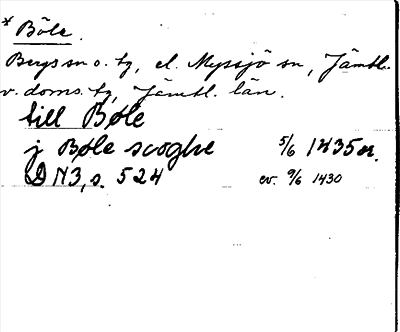 * Böle.
Bergs sn o. tg, el. Myssjö sn, Jämtl.
v. doms. tg, Jämtl. län.
till Bøle
j Bøle scoghe 5/6 1435 or.
D N 3, s. 524 ev. 9/6 1430